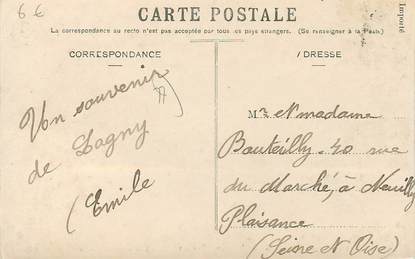 6 €
CARTE POSTALE
La correspondance au recto n'est pas acceptée par tous les pays étrangers. (Se renseigner à la Poste)
CORRESPONDANCE
ADRESSE
Importé
Un souvenir
de Lagny
Emile
M et madame
Bouteilly 40 rue
du Marché, à Neuilly
Plaisance
(Seine et Oise)